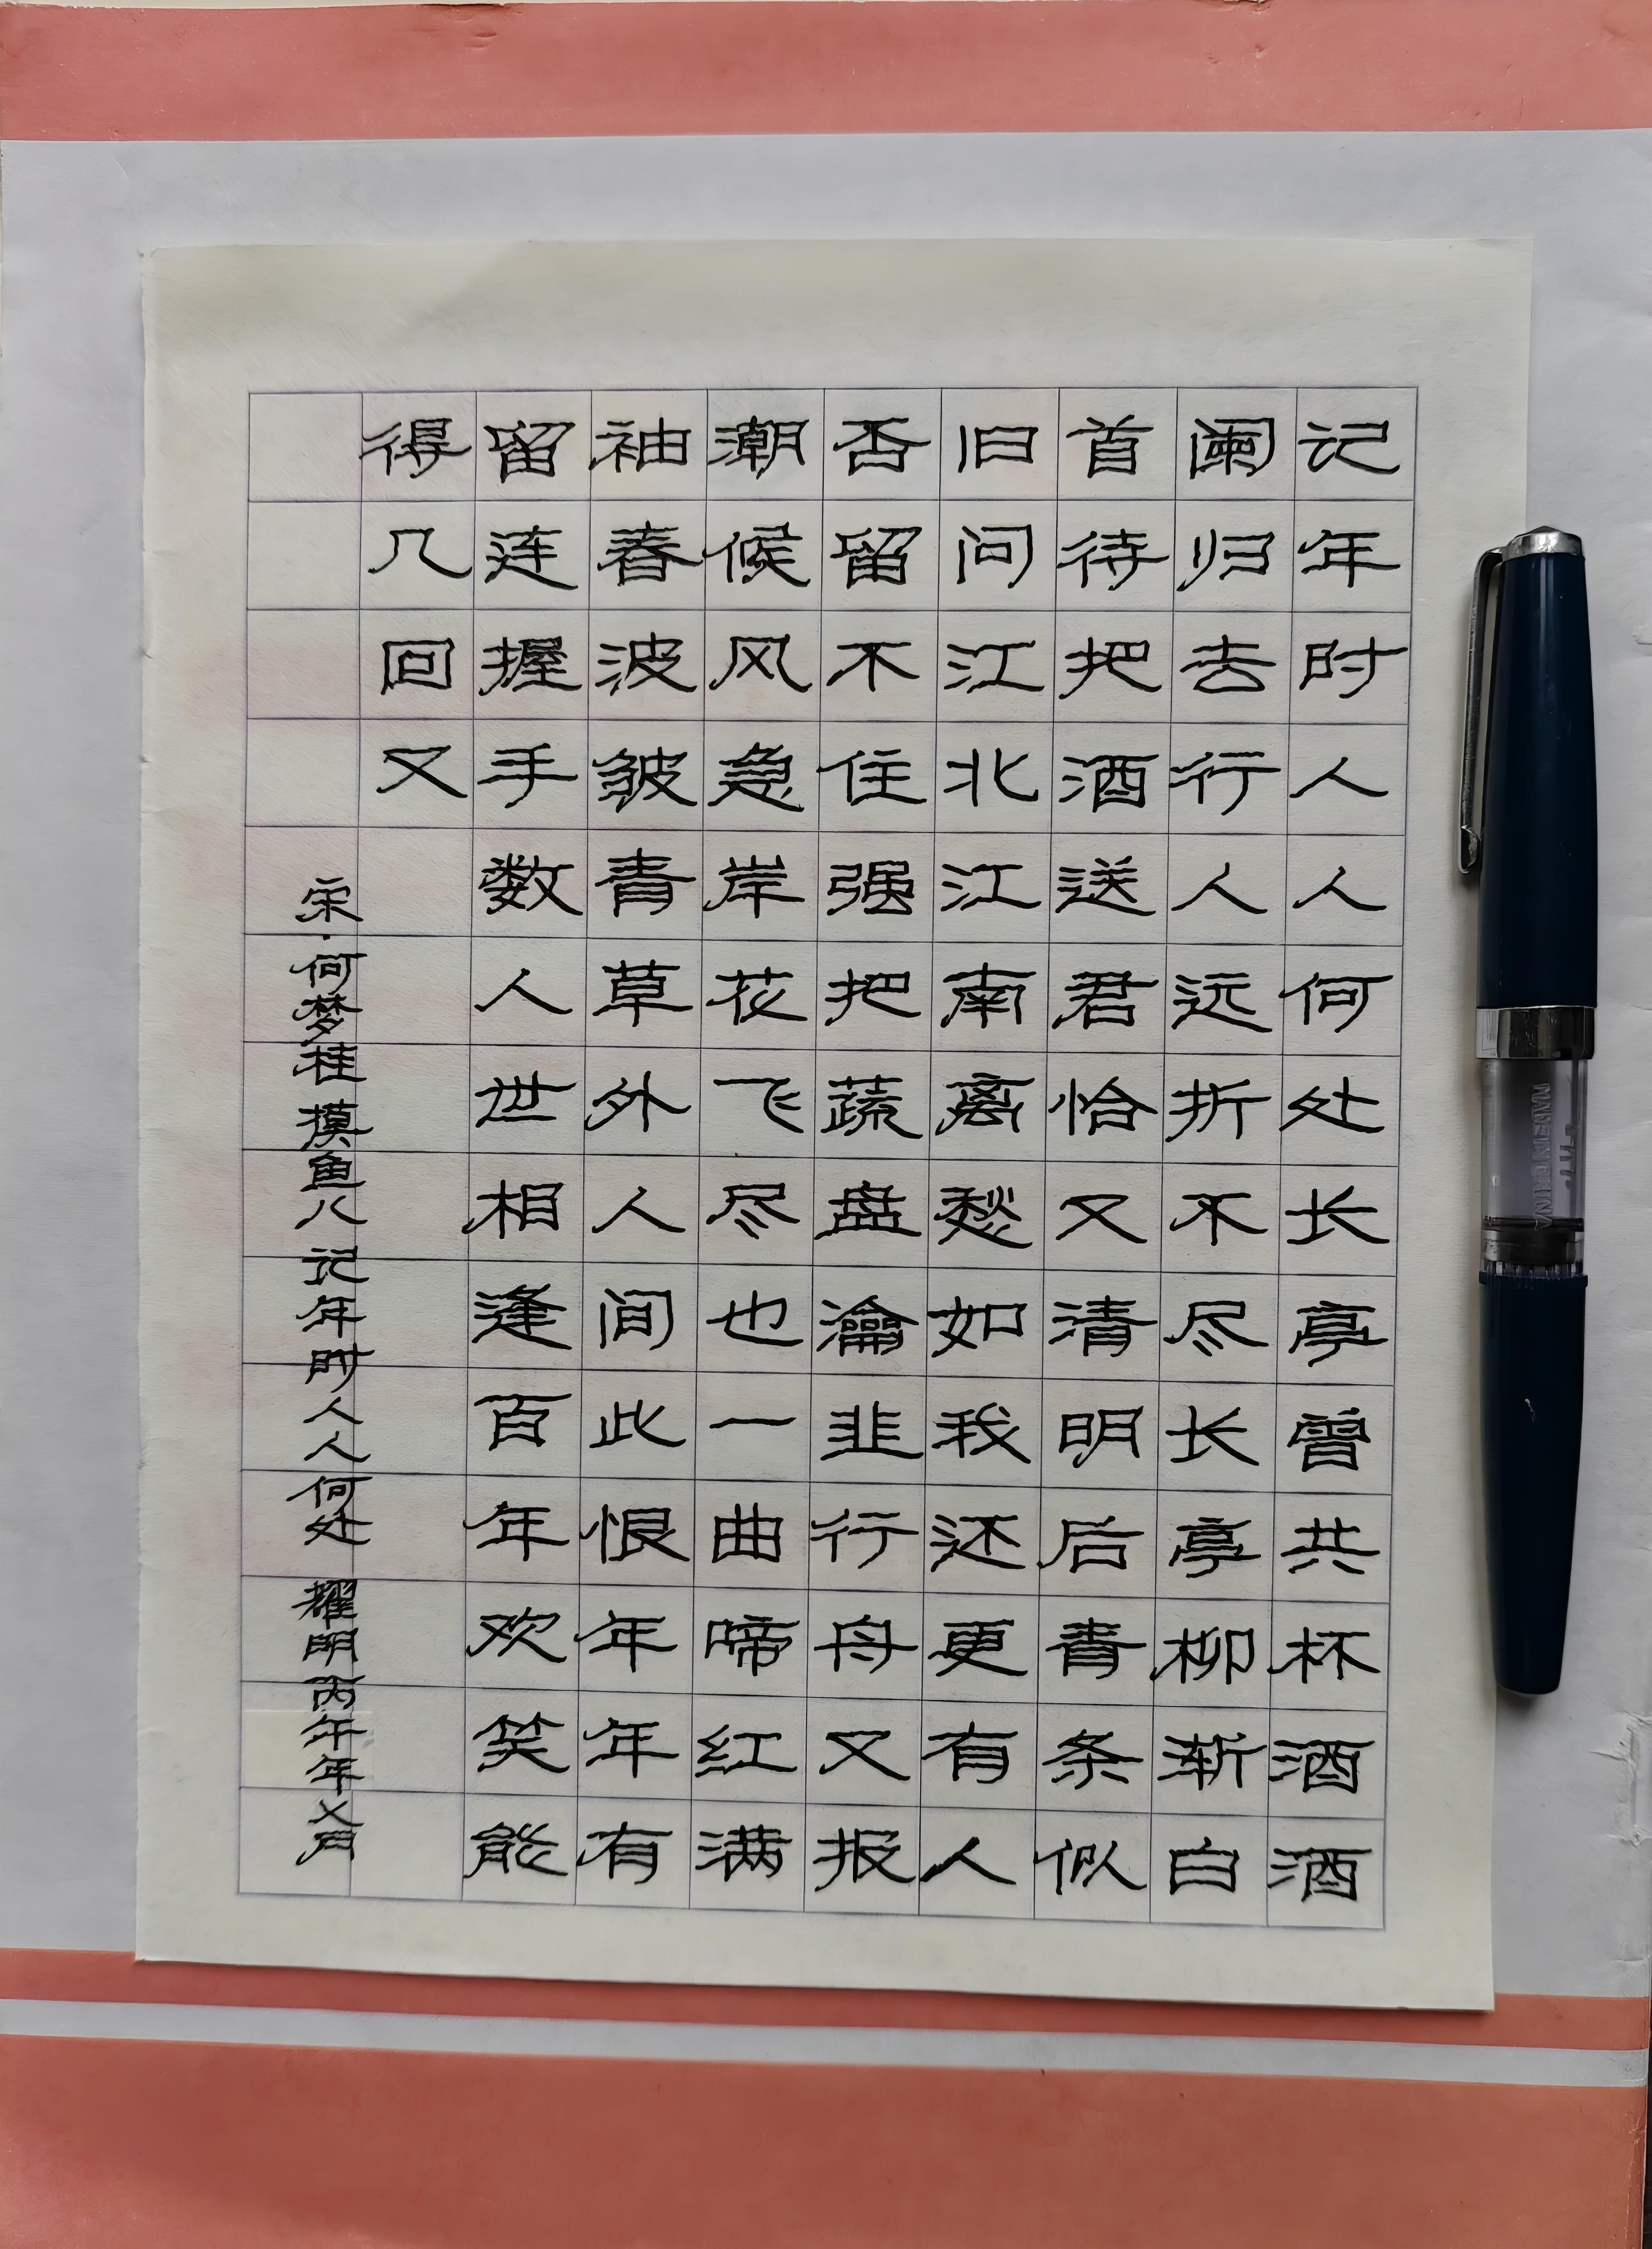 记年时人人何处长亭曾共杯酒酒
阑归去行人远折不尽长亭柳渐白
首待把酒送君恰又清明后青条似
旧问江北江南离愁如我还更有人
否留不住强把蔬盘瀹韭行舟又报
潮候风急岸花飞尽也一曲啼红满
袖春波皱青草外人间此恨年年有
留连握手数人世相逢百年欢笑能
得几回又
宋·何梦桂 摸鱼儿 记年时人人何处 耀明 丙午年 月
MADE IN CHINA